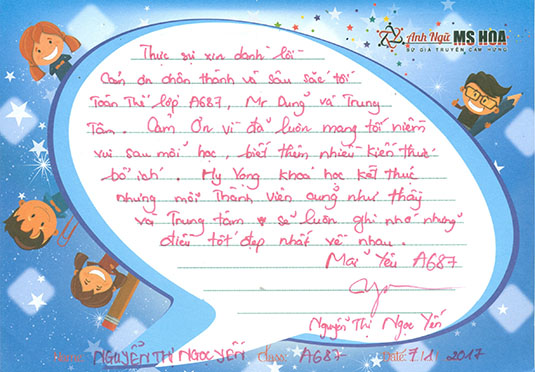 Anh Ngữ MS HOA
SỨ GIẢ TRUYỀN CẢM HỨNG
Thực sự xin dành lời
Cảm ơn chân thành và sâu sắc tới
Toàn Thể lớp A687, Mr Dũng và Trung
Tâm. Cảm Ơn vì đã luôn mang tới niềm
vui sau mỗi học, biết thêm nhiều kiến thức
bổ ích. Hy Vọng khoá học kết thúc
nhưng mỗi Thành Viên cũng như thầy
và Trung tâm sẽ luôn ghi nhớ những
điều tốt đẹp nhất về nhau.
Mãi Yêu A687
Nguyễn Thị Ngọc Yến
Name: NGUYỄN THỊ NGỌC YẾN Class: A687 Date: 7/1/2017